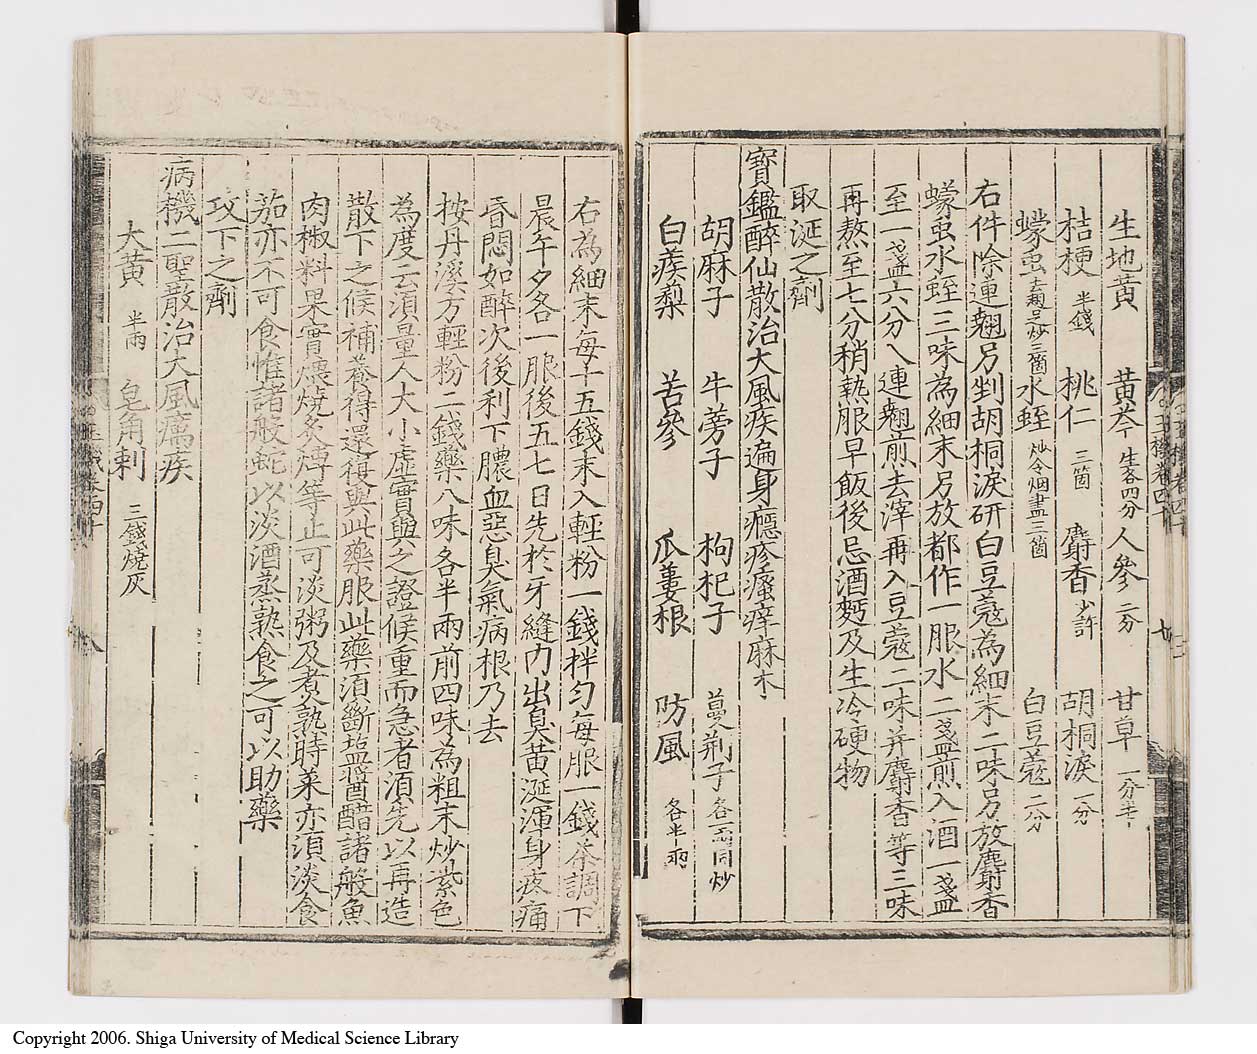 生地黄 黄芩 生各四分 人參 二分 甘草 一分半
桔梗 半錢 桃仁 三箇 麝香 少許 胡桐淚 一分
蠓虫 去翅足炒三箇 水蛭 炒令烟盡三箇 白豆蔻 二分
右件除連翹另剉胡桐淚研白豆蔻為細末二味另放麝香
蠓虫水蛭三味為細末另放都作一服水二盞煎入酒一盞
至一盞六分入連翹煎去滓再入豆蔻二味并麝香等三味
再熬至七分稍熱服早飯後忌酒麪及生冷硬物
取涎之劑
寶鑑醉仙散治大風疾遍身癮疹瘙痒麻木
胡麻子 牛蒡子 枸杞子 蔓荊子 各一兩同炒
白蒺䔧 苦參 瓜蔞根 防風 各半兩
右為細末每十五錢末入輕粉一錢拌匀每服一錢茶調下
晨午夕各一服後五七日先於牙縫內出臭黃涎渾身疼痛
昏悶如醉次後利下膿血惡臭氣病根乃去
按丹溪方輕粉二錢藥八味各半兩前四味為粗末炒紫色
為度云須量人大小虛實與之證候重而急者須先以再造
散下之候補養得還復與此藥服此藥須斷塩醬醋諸般魚
肉椒料果實煨燒炙煿等止可淡粥及煮熟時菜亦須淡食
茄亦不可食惟諸般蛇以淡酒蒸熟食之可以助藥
攻下之劑
病機二聖散治大風癘疾
大黃 半兩 皂角刺 三錢燒灰
Copyright 2006. Shiga University of Medical Science Library